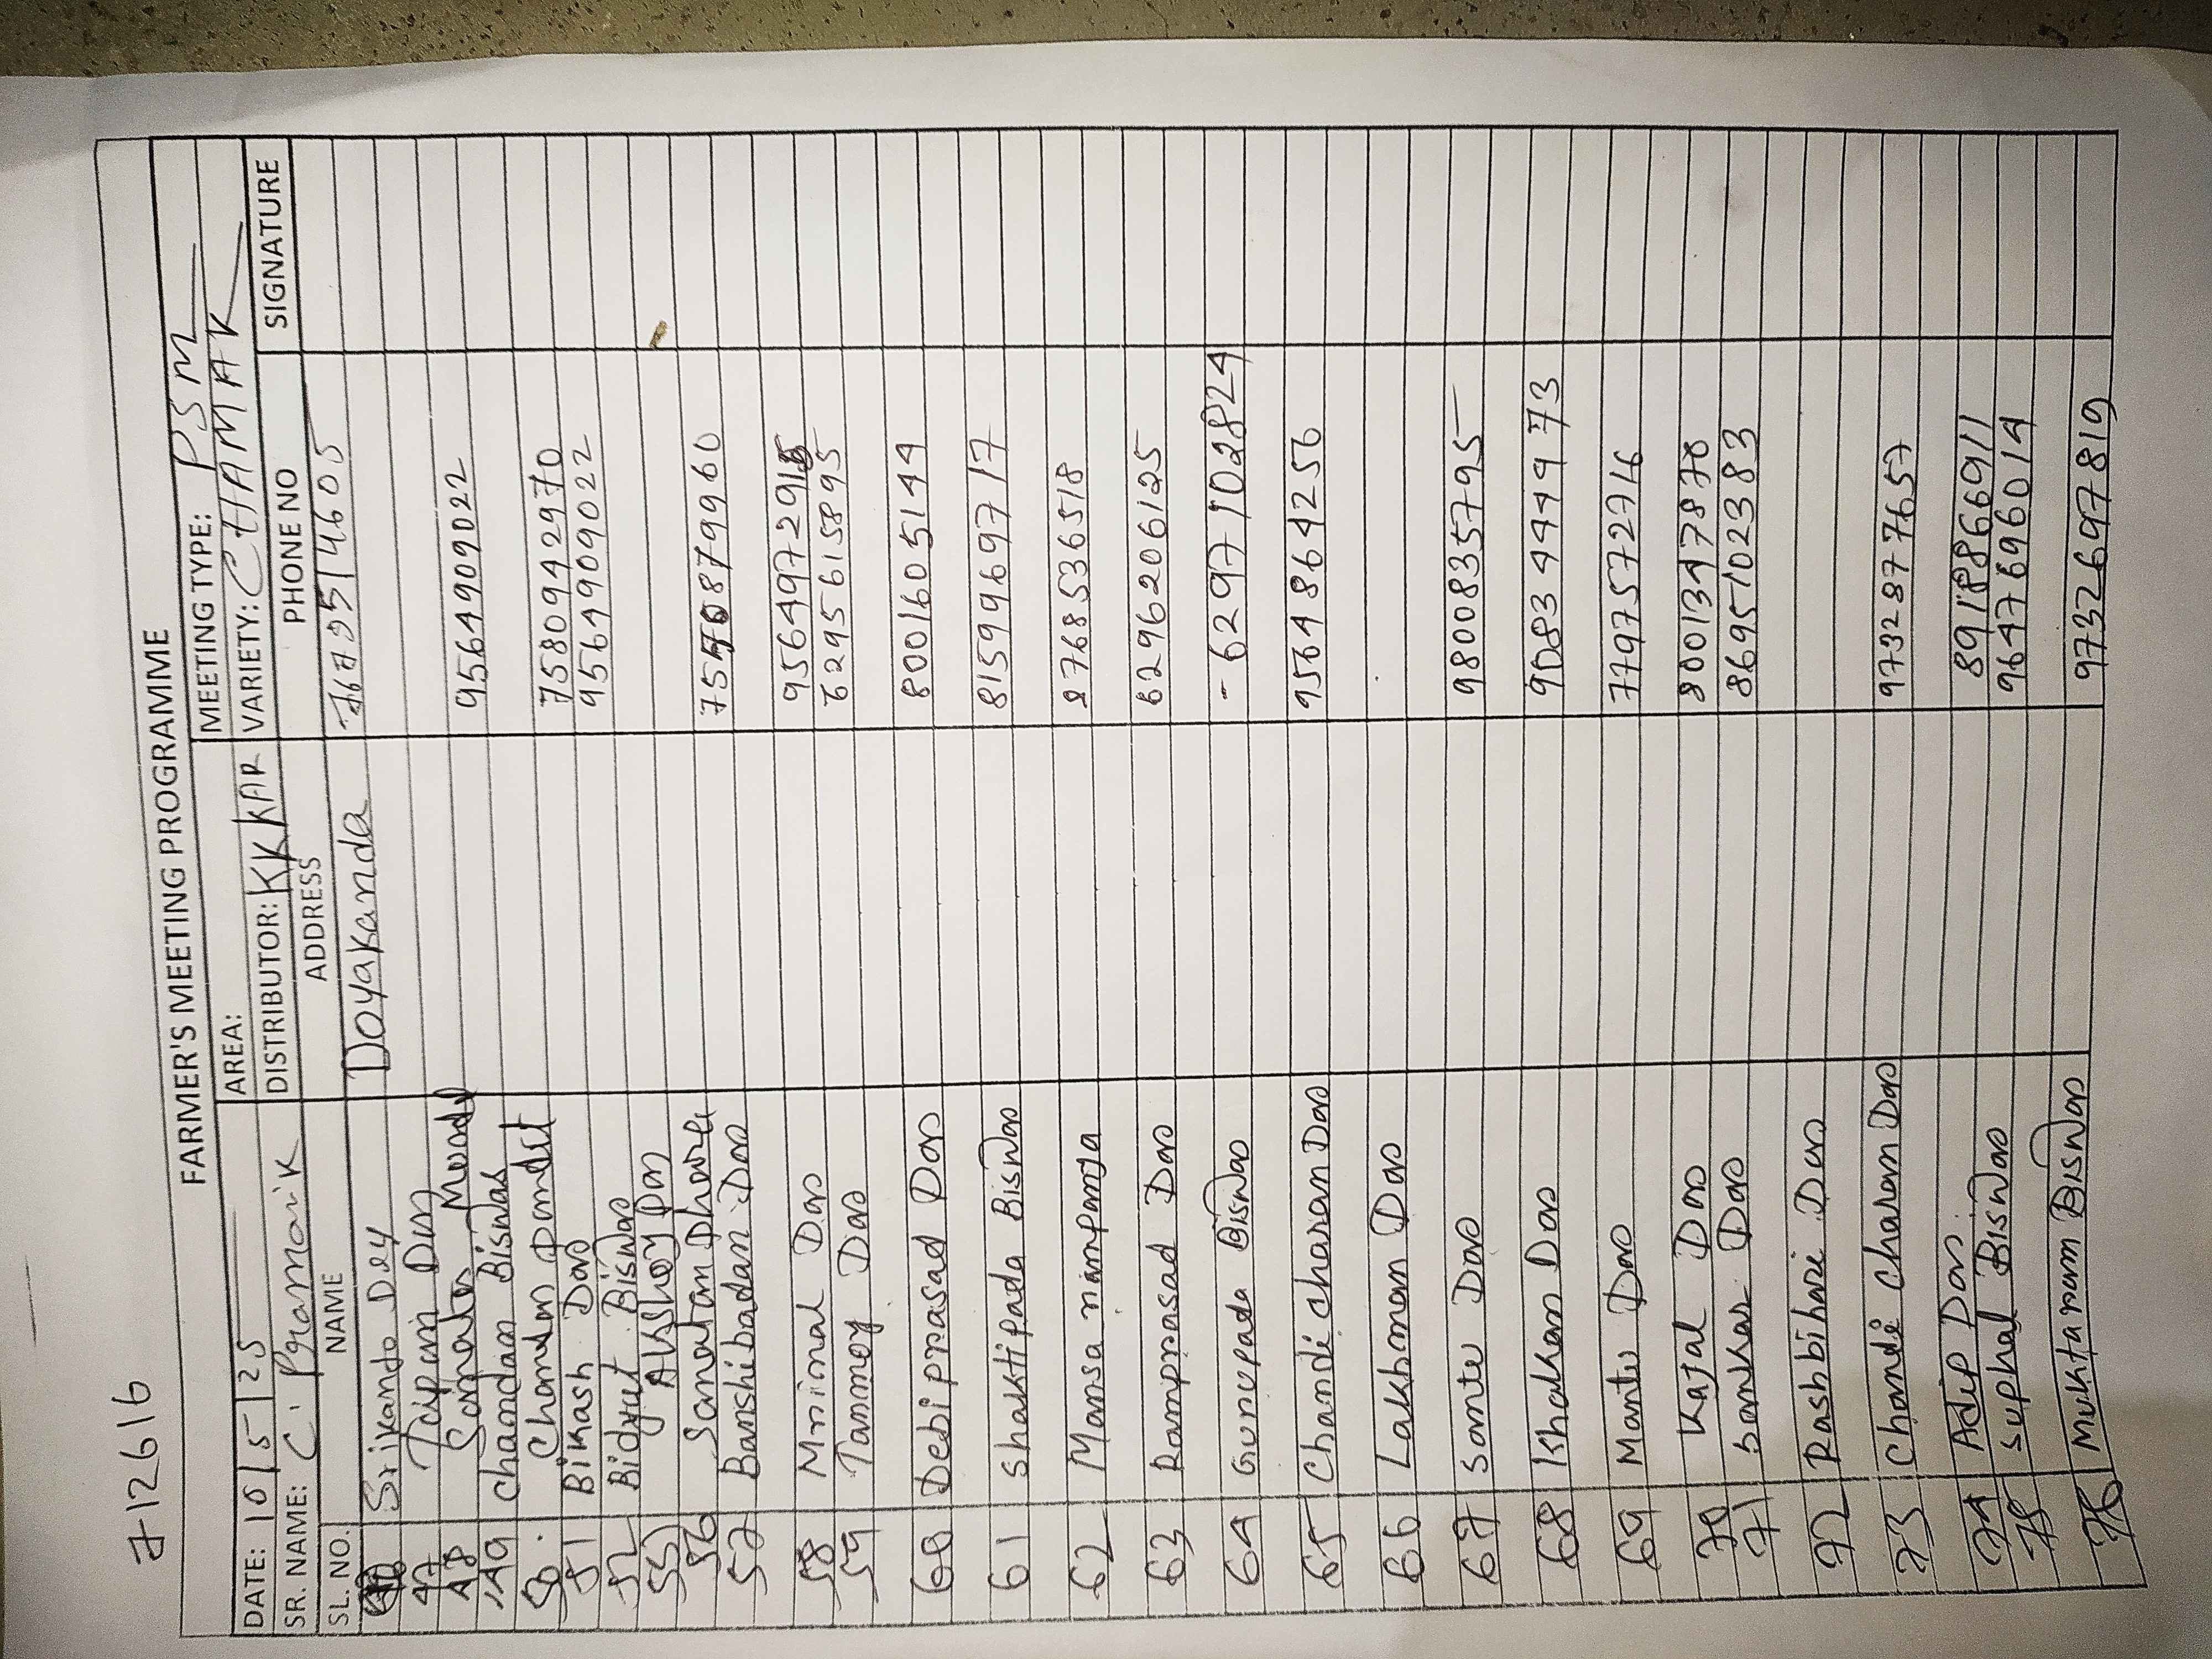 712616
FARMER'S MEETING PROGRAMME
DATE: 10/5/25 AREA: MEETING TYPE: PSM
SR. NAME: C. Pramanik DISTRIBUTOR: KK KAR VARIETY: CHAMAK
SL. NO. NAME ADDRESS PHONE NO SIGNATURE
Srikanto Dey Doyakanda
47
48 9564909022
49 chandan Biswas
50. 7580942970
51 Bikash Das 9564909022
52 Bidyut Biswas
55 AKShoy Das
56 Sanatan Dhave
57 Banshibadan Das
58 Mrinal Das
59 Tanmoy Das 6295615895
60 Debi prasad Das 8001605144
61 Shaktipada Biswas 8159969717
62 Mansa 8768536518
63 Ramprasad Das 6296206125
64 Gurupada Biswas - 6297102824
65 Chandi charan Das 9564864256
66 Lakhman Das
67 Santu Das 9800835795
68 Khokhan Das 9083444973
69 Mantu Das 7797572716
70 Kajal Das 8001347870
71 Sankar Das 8695102383
72 Rashbihari Das
73 Chandi charan Das 9732877657
74 Adip Das 8918866911
75 Suphal Biswas 9647696014
76 Muktaram Biswas 9732697819